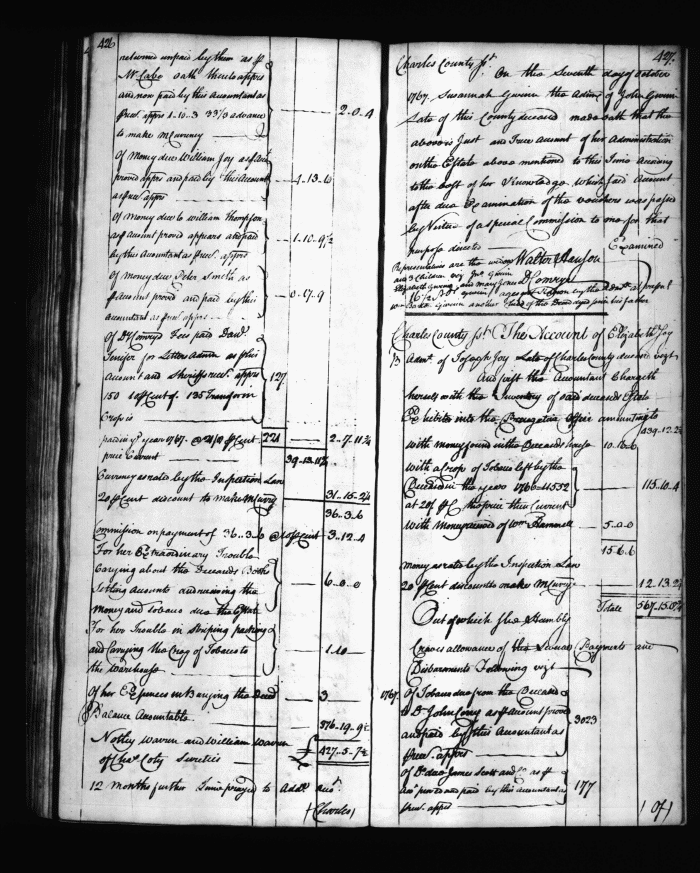 426
returned unpaid by them as pr
Mr. Cabo oath thereto apprs
and now paid by this accountant as
apprs 1..10..3 33 1/3 advance 2..0..4
to make
Of money due William Joy as pr acct
proved apprs and paid by this Account 4..13..6
as pr rect. apprs
Of money due to William Thompson
as pr Account proved appears and paid 1..10..9 1/2
by this accountant as pr rect. apprs
Of money due Peter Smith as
pr account proved and paid by this 0..17..9
accountant as pr rect. apprs
Of Fees paid Danl.
Jenifer for Letters Admn. as pr his
Account and Sheriffs rect. apprs 127
150 10 pr Cent of 135
Crop is
paid in ye year 1767 .. @ 21/0 pr Cent 221 2..7..11 1/4
price Current 39..13..11 3/4
Currency as rated by the Inspection Law
20 pr Cent discount to make 31..15..2 1/4
36..3..6
Commission on payment of 36..3..6 @ 10 pr Cent 3..12..4
For her Extraordinary Trouble
Carying about the Deceaseds Books
Setling accounts and receiving the 6..0..0
money and tobacco due the Estate
For her Trouble in Striping packing
and Carrying the Crop of Tobacco to 1..10
the Warehouse
Of her Expences in Burying the Deced 3
Balance Accountable 576..19..9
Notley Warren and William Warren
of Chas. Coty Sureties 427..5..7 1/2
12 months further Time prayed to Addl. acct.
(Charles)
427.
Charles County Sst. On this Seventh day of October
1767. Susannah Gwinn the Admx of John Gwinn
Late of this County deceased made oath that the
above is Just and True Account of her Administration
on the Estate above mentioned to this Time According
to the best of her Knowledge. Which said Account
after due Examination of the vouchers was passed
by Virtue of a special Commission to me for that
purpose directed Examined
Walter Hanson
Representatives are the widow
and 3 Children viz Jno. Gwinn
Elizabeth Gwinn and Mary Jones
by the Admx. at present
Gwinn another Child of the Deced dyed since his father
Charles County Sst. The Account of Elizabeth Joy
Admx. of Joseph Joy Late of Charles County deceased vizt
And first this Accountant Chargeth
herself with the Inventory of said deceaseds Estate
Exhibited into the Prerogative Office amounting to
439..12..2
with money found in the Deceaseds house 10..16..6
with a Crop of Tobacco left by the
Deceased in the year 1766 11552 115..10..4
at 20/ pr Ct the price then Current
With money received of Wm Hammell 5..0..0
15..16..6
money as rated by the Inspection Law
20 pr Cent discount to make 12..13..2 1/2
Totale 567..15..
Out of which She Humbly
Craves allowance of the Several Payments and
Disbursments Following vizt
1767. Of Tobacco due from the Deceased
to Dr John as pr account proved 3023
and paid by this Accountant as
pr rect. apprs
Of Do. due James Scott and as pr
acct proved and paid by this accountant as 177
pr rect. apprs
(Of)